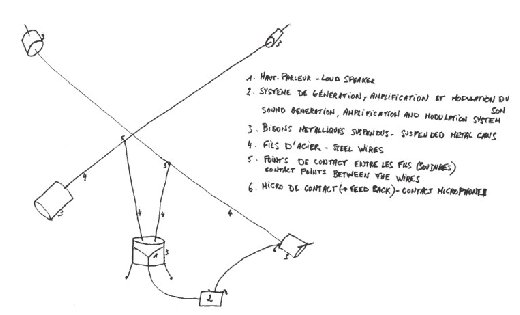 1. HAUT-PARLEUR - LOUD SPEAKER
2. SYSTÈME DE GÉNÉRATION, AMPLIFICATION ET MODULATION DU SON
SOUND GENERATION, AMPLIFICATION AND MODULATION SYSTEM
3. BIDONS METALLIQUES SUSPENDUS - SUSPENDED METAL CANS
4. FILS D'ACIER - STEEL WIRES
5. POINTS DE CONTACT ENTRE LES FILS (SOUDURES)
CONTACT POINTS BETWEEN THE WIRES
6. MICRO DE CONTACT (+ FEED BACK) - CONTACT MICROPHONES
3
3
5
5
4
3
4
4
4
1
3
2
6
3